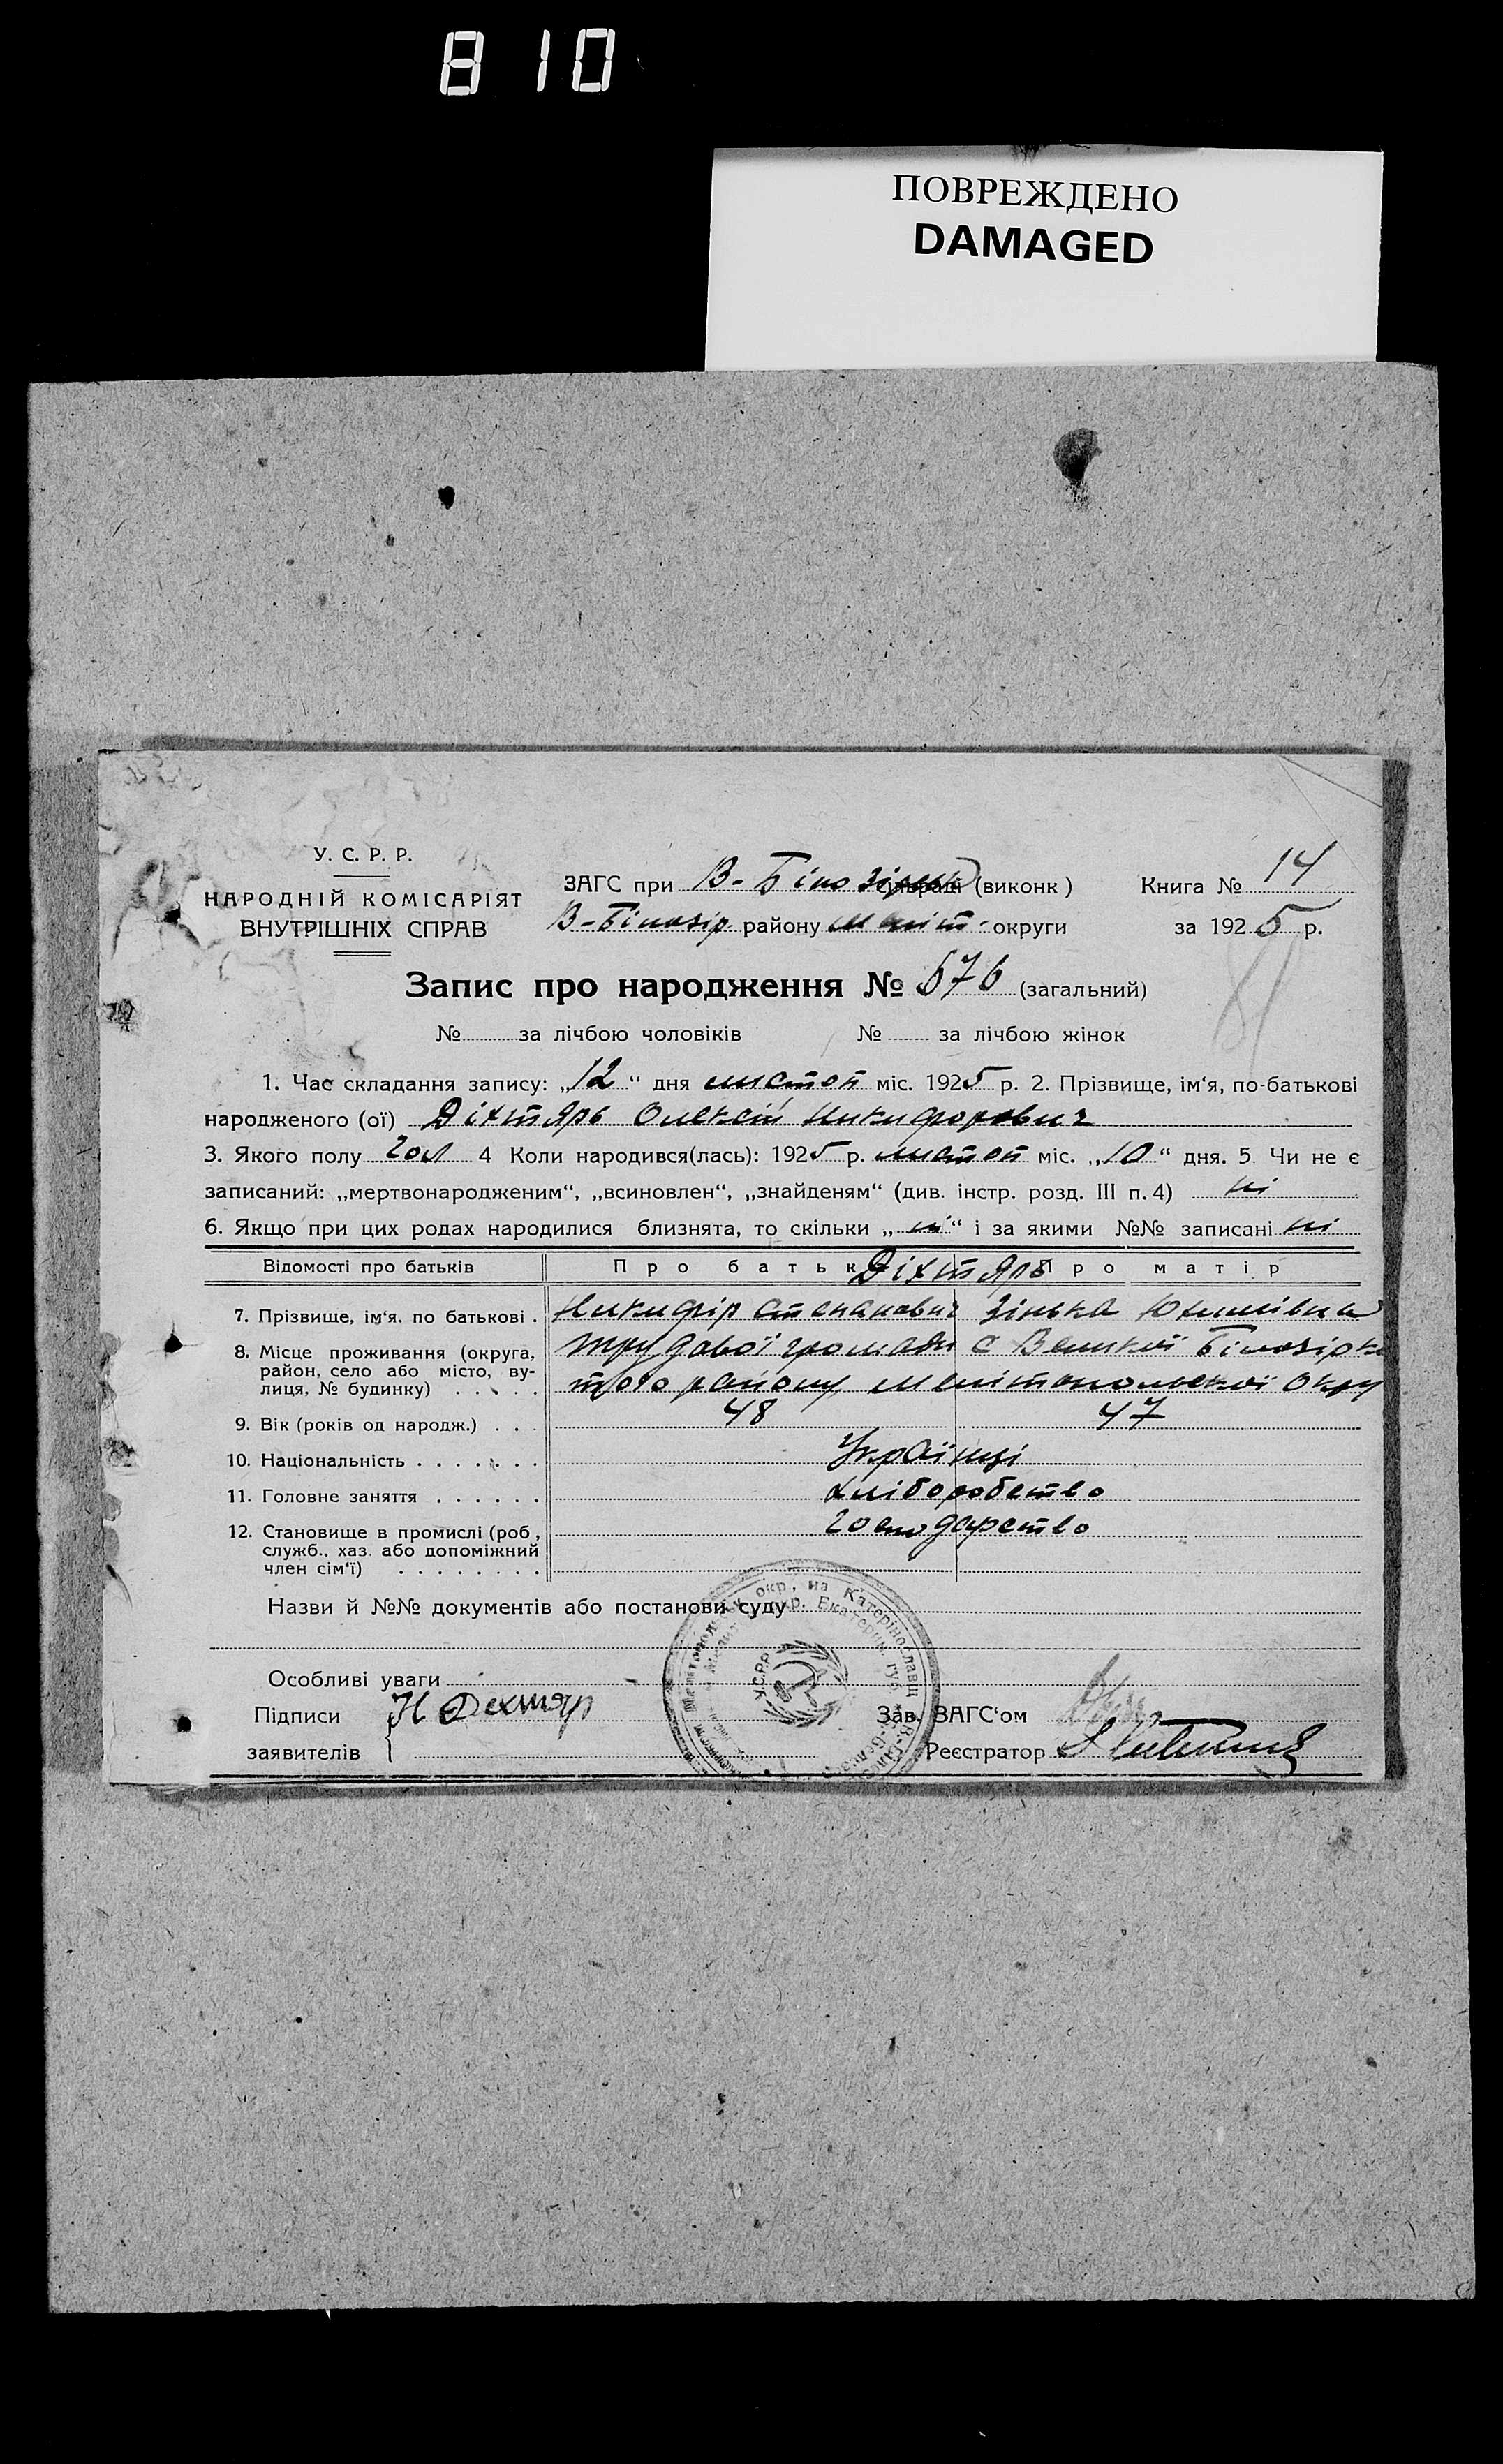 810
ПОВРЕЖДЕНО
DAMAGED
У. С. Р. Р.
НАРОДНІЙ КОМІСАРІЯТ
ВНУТРІШНІХ СПРАВ
ЗАГС при В-Білозірськ сільраді (виконк)
В-Білозір району Меліт. округи
Книга № 14
за 1925 р.
Запис про народження № 576 (загальний)
№ за лічбою чоловіків № за лічбою жінок
1. Час складання запису: „12“ дня листоп міс. 1925 р. 2. Прізвище, ім'я, по-батькові
народженого (ої) Діхтярь Олексій Никифорович
3. Якого полу чол 4 Коли народився(лась): 1925 р. листоп міс. „10“ дня. 5. Чи не є
записаний: „мертвонародженим“, „всиновлен“, „знайденям“ (див. інстр. розд. III п. 4) ні
6. Якщо при цих родах народилися близнята, то скільки „ні“ і за якими №№ записані ні
Відомості про батьків Про батька Діхтярь Про матір
7. Прізвище, ім'я. по батькові . Никифір Степанович Зінька Юхимівна
8. Місце проживання (округа, район, село або місто, вулиця, № будинку) . . . . . Трудової громади с Великої Білозірки
того району Мелітопольської Окру
9. Вік (років од народж.) . . . 48 47
10. Національність . . . . . . . Українці
11. Головне заняття . . . . . . хліборобство
12. Становище в промислі (роб, служб., хаз. або допоміжний член сім'ї) . . . . . . . . господарство
Назви й №№ документів або постанови суду
Особливі уваги
Підписи
заявителів
Н Дехтяр
Зав. ЗАГС'ом
Реєстратор
У.С.Р.Р.
окр., на Катеринославщ